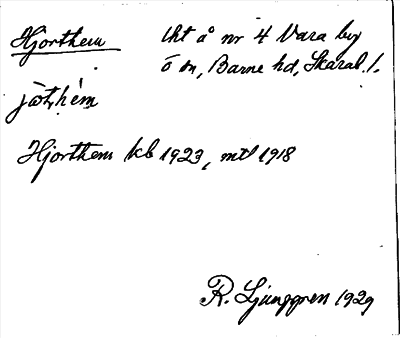 Hjorthem lht å nr 4 Vara by
ö sn, Barne hd, Skarab. l.
Hjorthem kb 1923, mtl 1918
R. Ljunggren 1929